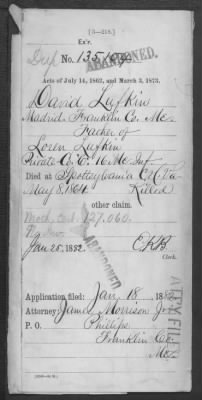 [3—218.]
Ex'r.
Dep No. 135,
ABANDONED.
Acts of July 14, 1862, and March 3, 1873.
David Lufkin
Madrid, Franklin Co. Me
Father of
Loren Lufkin
Private C. E. 16 Me Inf
Died at Spottsylvania C.H. Va
May 8, 1864 Killed
other claim.
Moth. cert. 127.060.
Jan 25, 1882. Clerk.
ABANDONED
Application filed: Jan 18, 188
Attorney: James Morrison Jr
P. O. Phillips
Franklin Co.
Me
ATTY FILE